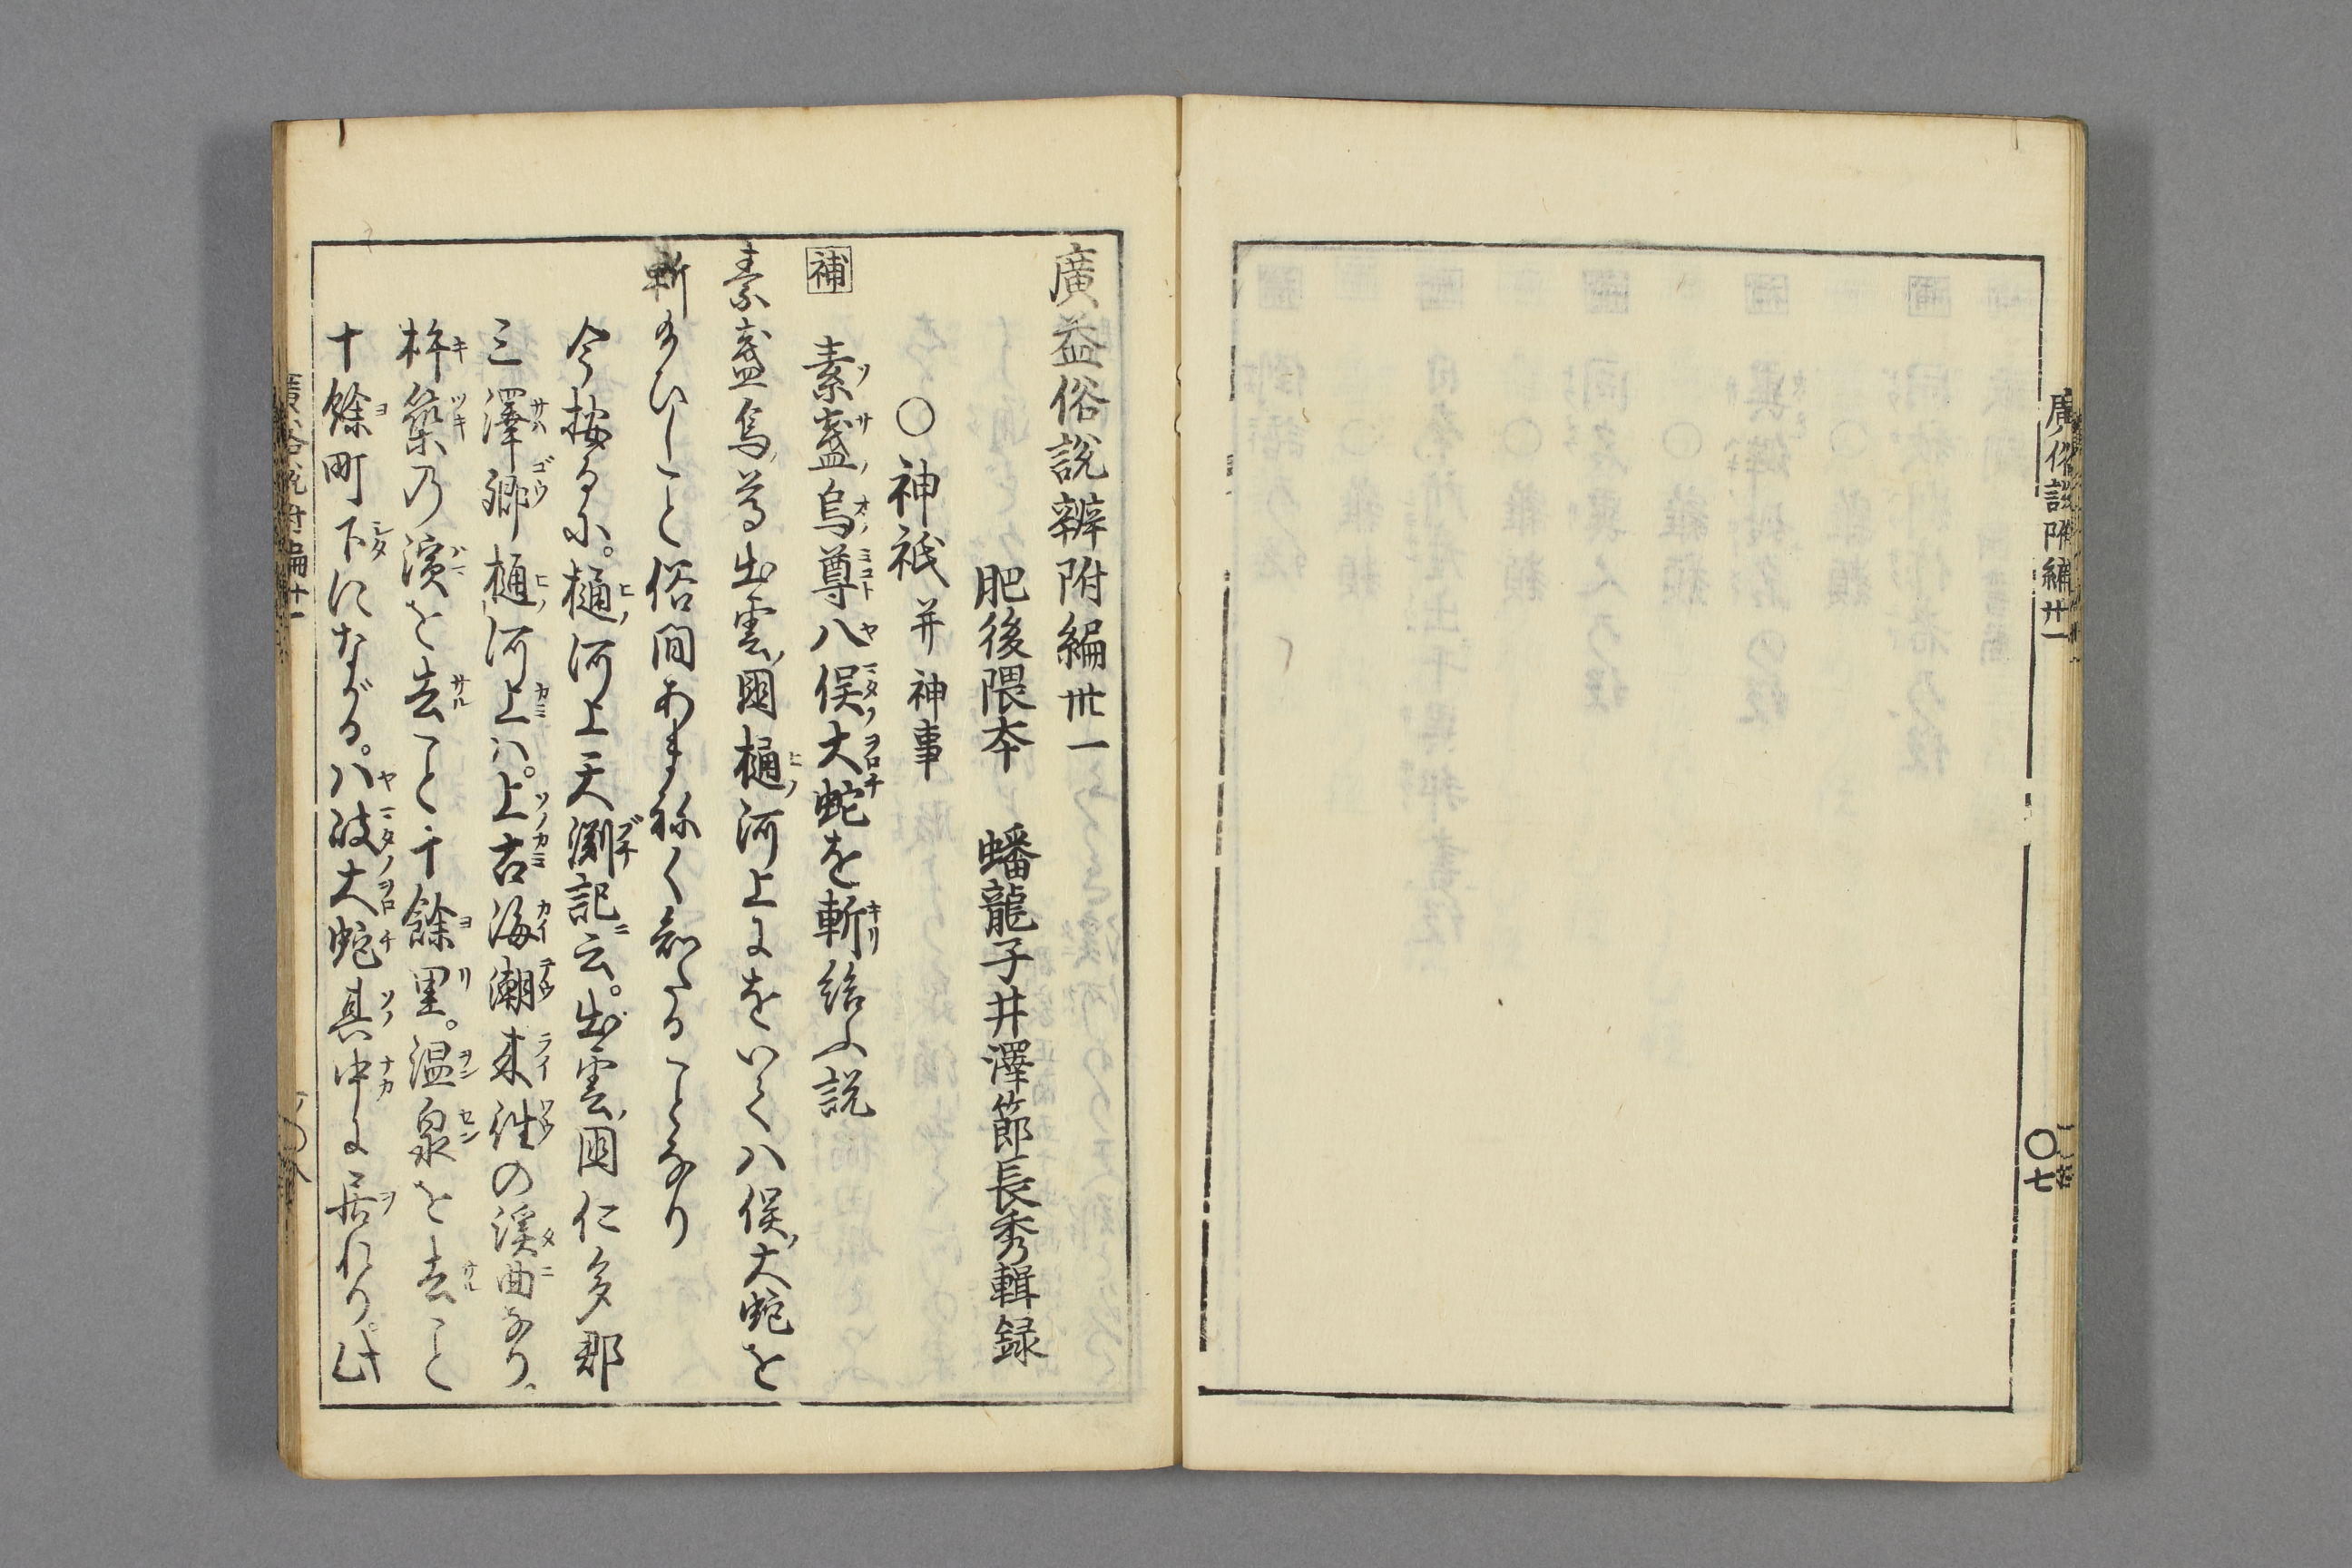 廣俗説附編卅一
〇七
廣益俗説辨附編卅一
肥後隈本　蟠龍子井澤節長秀輯録
〇神祇并神事
補　素盞烏尊八俣大蛇を斬給ふ説
素盞烏尊出雲國樋河上にをいて八俣大蛇を
斬給ひしこと俗間あまねく知たることなり
今按るに。樋河上天淵記云。出雲國仁多郡
三澤郷樋河上ハ。上古海潮来往の溪曲なり。
杵築乃濱を去こと千餘里。温泉を去こと
十餘町下にながる。八岐大蛇其中に居れり。此
廣俗説附編卅一